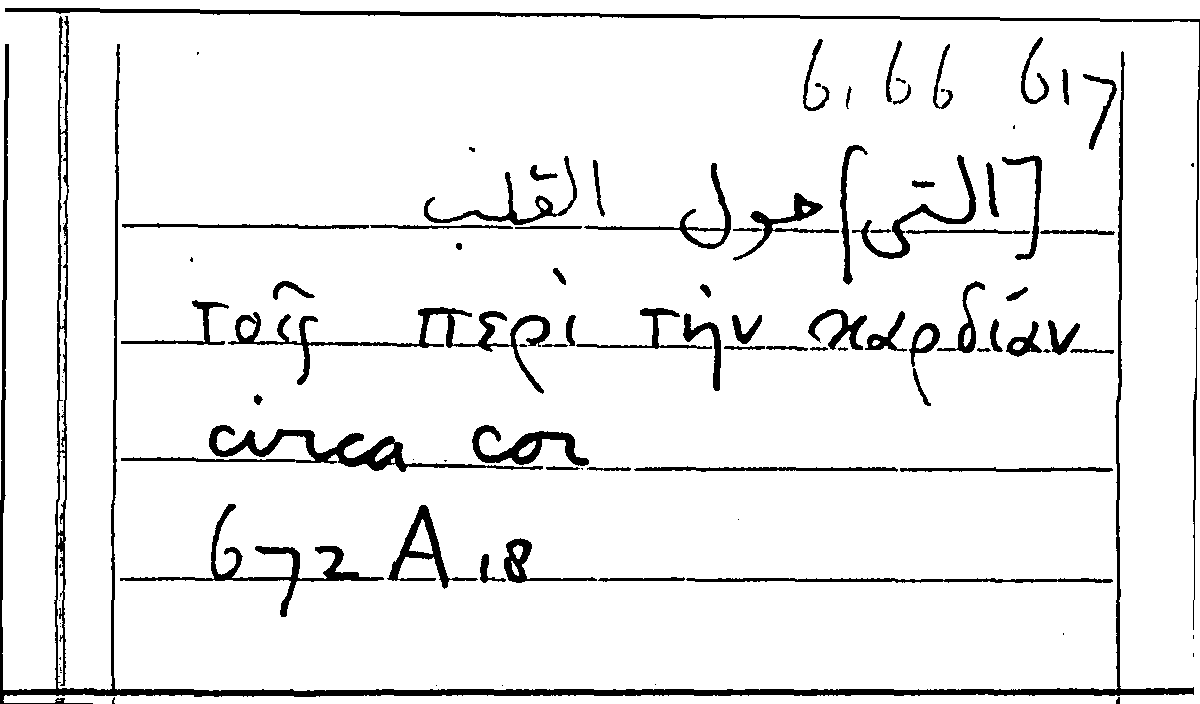 6, 66 617
[التى] حول القلب
τοῖς περὶ τὴν καρδίαν
circa cor
672 A 18